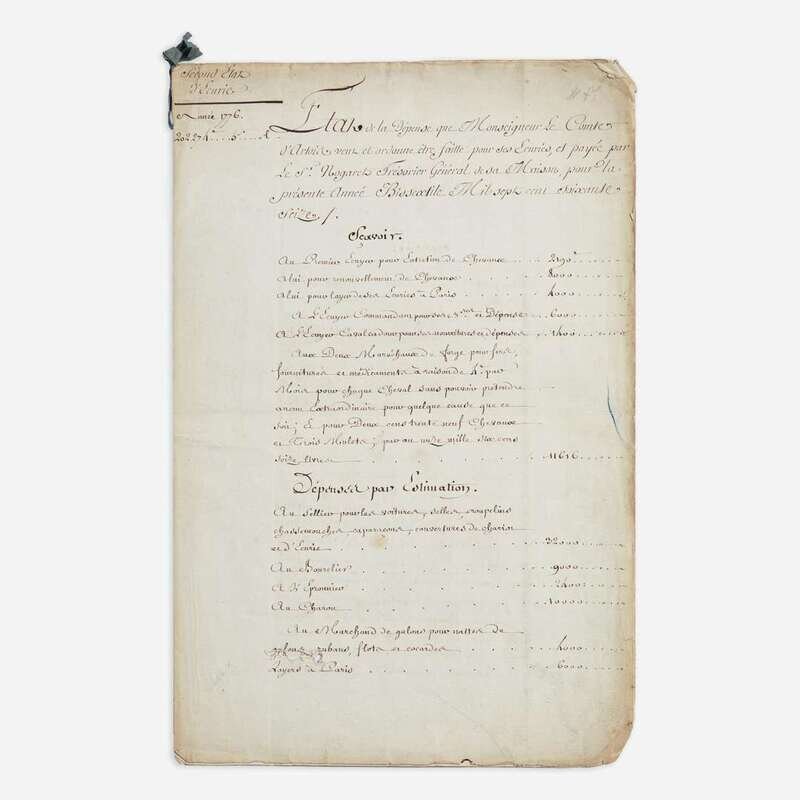 Second Etat
d'Ecurie
Année 1776.
202.274
Etat de la Dépense que Monseigneur Le Comte
d'Artois veut et ordonne être faitte pour ses Ecuries, et payée par
Le Sr. Nogaret Trésorier Général de sa Maison, pour la
présente Année Bissextile Mil sept cent soixante
seize /.
Sçavoir.
Au Premier Ecuyer pour Entretien de Chevaux
a lui pour renouvellement de Chevaux . . . . 8000
a lui pour loyer de ses Ecuries à Paris . . . . 4000
A L'Ecuyer Commandant pour ses et Dépense 6000
A L'Ecuyer Cavalcadour pour ses nourritures et dépenses
Aux Deux Maréchaux de forge pour fers,
fournitures et médicaments à raison de 4lt par
Mois pour chaque Cheval sans pouvoir prétendre
aucun Extraordinaire pour quelque cause que ce
soit; Et pour Deux cens trente neuf Chevaux
et Trois Mulets; par an onze mille six cens
seize livres . . . . 11616
Dépenses par Estimation.
Au Sellier pour les voitures, selles, croupelins
chassemouches, caparacons, couvertures de chariot
et d'Ecurie . . . . 22000
Au Bourelier . . . . 9000
A L'Eperonnier . . . . 2400
Au Charon . . . . 10000
Au Marchand de galons pour nattes de
galons, rubans, flots et cocardes . . . . 4000
Loyers à Paris . . . . 6000